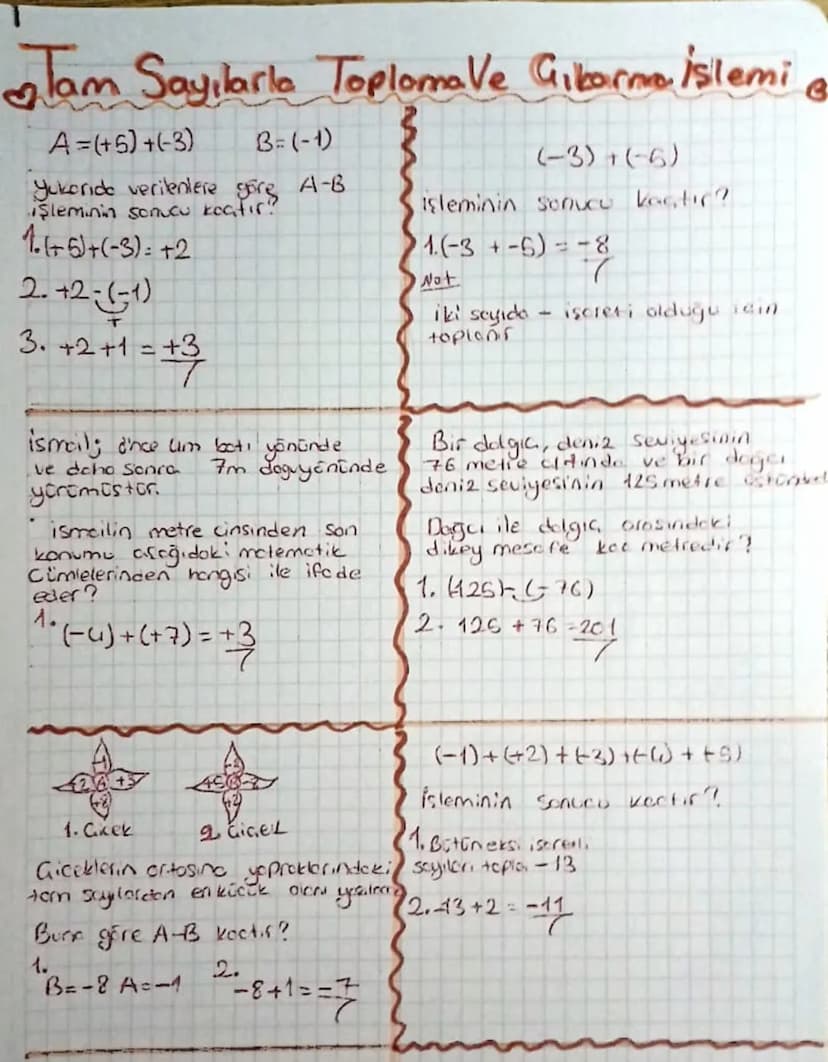 Tam Sayılarla Toplama Ve Çıkarma İşlemi
A=(+5)+(-3) B=(-1)
Yukarıda verilenlere göre A-B
işleminin sonucu kaçtır?
1.(+5)+(-3)= +2
2. +2-(-1)
+
3. +2+1 = +3
(-3)+(-5)
işleminin sonucu kaçtır?
1.(-3 + -5) = -8
Not
İki sayıda - işareti olduğu için
toplanır
İsmail; önce 4m batı yönünde
ve daha sonra 7m doğu yönünde
yürümüştür.
ismailin metre cinsinden son
konumu aşağıdaki matematik
Cümlelerinden hangisi ile ifade
eder?
1. (-4)+(+7) = +3
Bir dalgıç, deniz seviyesinin
76 metre altında ve bir dağcı
deniz seviyesinin 125 metre
Dağcı ile dalgıç arasındaki
dikey mesafe kaç metredir?
1. (125)-(-76)
2. 125 + 76 = 201
1. Çiçek 2. Çiçek
Çiçeklerin ortasına yapraklarındaki
tam sayılardan en küçük olanı
Buna göre A-B kaçtır?
1. B=-8 A=-1
2. -8+1 = -7
(-1)+(+2)+(-3)+(-4)+(-5)
İşleminin sonucu kaçtır?
1. Bütün eksi işaretli
sayıları topla -13
2. -13+2 = -11